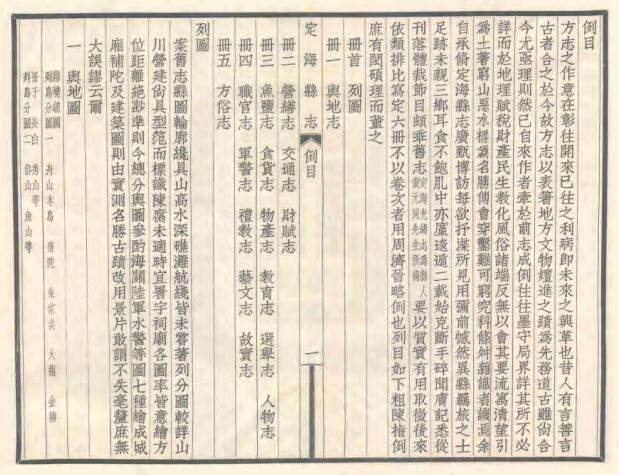 例目
方志之作意在彰往開來已往之利病即未來之興革也昔人有言善言
古者合之於今故方志以表著地方文物嬗進之蹟為先務道古雖尙合
今尤亟理則然已自來作者牽於前志成例往往墨守局界詳其所不必
詳而於地理賦稅財產民生敎化風俗諸端反無以會其要流寓清望引
為土著窮山惡水標為名勝傅會穿鑿難可窮究科條舛雜識者譏焉余
自承脩定海縣志廣甄博訪每欲抒渫所見用彌前憾然異縣羈旅之士
足跡未親三鄉耳食不飽肌中亦廑逡遁二載始克斷手碎聞膚記悉從
刊落體裁節目頗乖舊志定海光緒志為縣人黃元同先生所編要以質實有用取徵後來
依類排比寫定六冊不以卷次者用周濟晉略例也列目如下粗陳指例
庶有閎碩理而董之
冊首 列圖
冊一 輿地志
定海縣志 例目 一
冊二 營繕志 交通志 財賦志
冊三 魚鹽志 食貨志 物產志 敎育志 選舉志 人物志
冊四 職官志 軍警志 禮敎志 藝文志 故實志
冊五 方俗志
列圖
案舊志縣圖輪廓纔具山高水深礁灘航綫皆未嘗著列分圖較詳山
川營建尙具型笵而標識陳腐未適時宜署字祠廟各圖率皆意繪方
位距離絕尠準則今總分輿圖參酌海關陸軍水警等圖七種繪成城
廂補陀及建築圖則由實測名勝古蹟改用景片敢謂不失毫釐庶無
大誤謬云爾
一 輿地圖
縣境總圖
列島分圖一 舟山本島 普陀 朱家尖 大榭 金塘
冊子 長白 秀山等
列島分圖二 岱山 魚山等